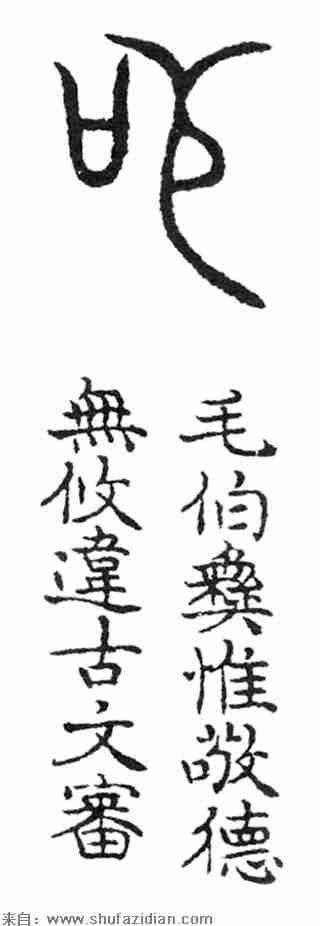 毛伯彝惟敬德
無攸違古文審
来自：www.shufazidian.com